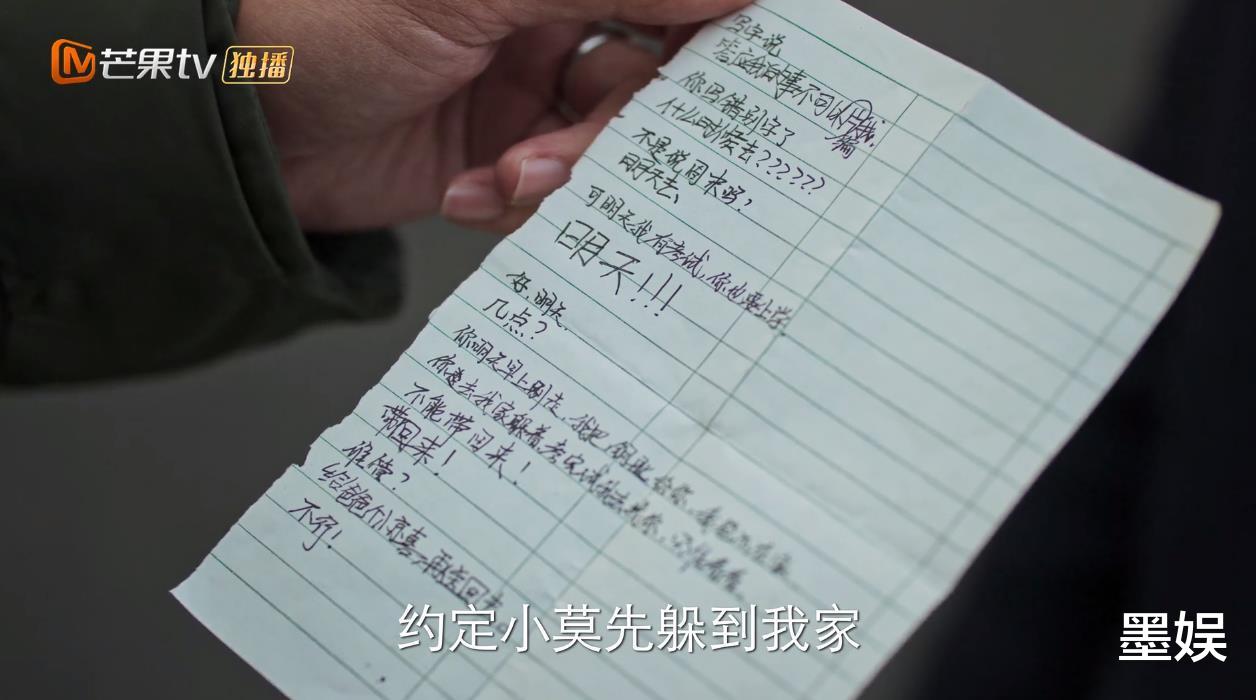 芒果tv 独播
写字说
答应我的事不可以
篇
你写错别字了
什么时候去??????
不是说周末吗?
明天去、
可明天我有考试,你也要上学.
明天!!!
好,明天.
几点?
你明天早上别走,我把钥匙给你,
你先去我家躲着,考完试我去
不能带回来!
带回来!
准借?
给爸爸个惊喜 再送回去
不行!
约定小莫先躲到我家
墨娱